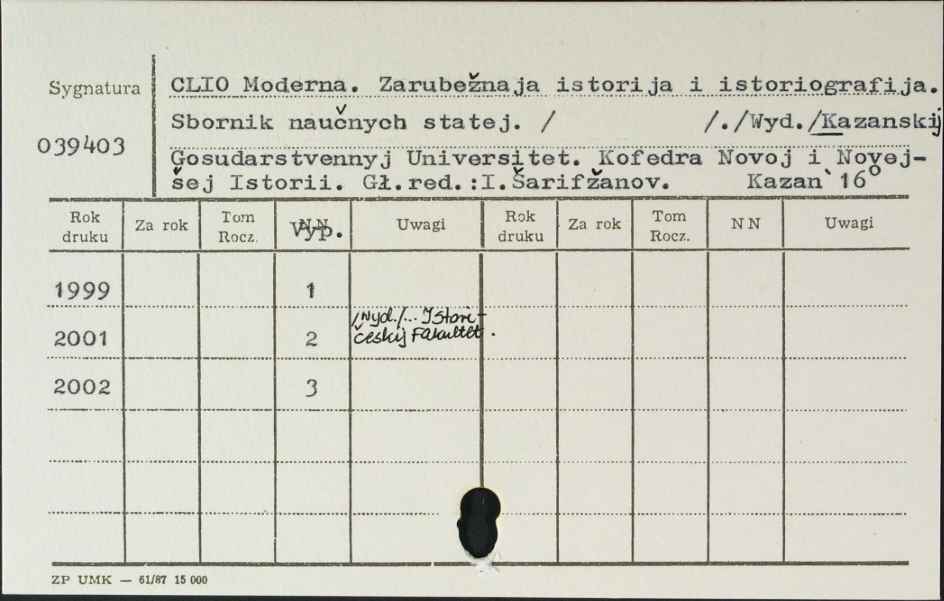 Sygnatura
CLIO Moderna. Zarubežnaja istorija i istoriografija.
039403
Sbornik naučnych statej. / /./Wyd./Kazanskij
Gosudarstvennyj Universitet. Kofedra Novoj i Novej-
šej Istorii. Gł.red.:I.Šarifžanov. Kazan` 16°
Rok druku Za rok Tom Rocz. NN Vyp. Uwagi Rok druku Za rok Tom Rocz. NN Uwagi
1999 1
2001 2 /Wyd./... Istori-
českij Fakultet.
2002 3
ZP UMK — 61/87 15 000